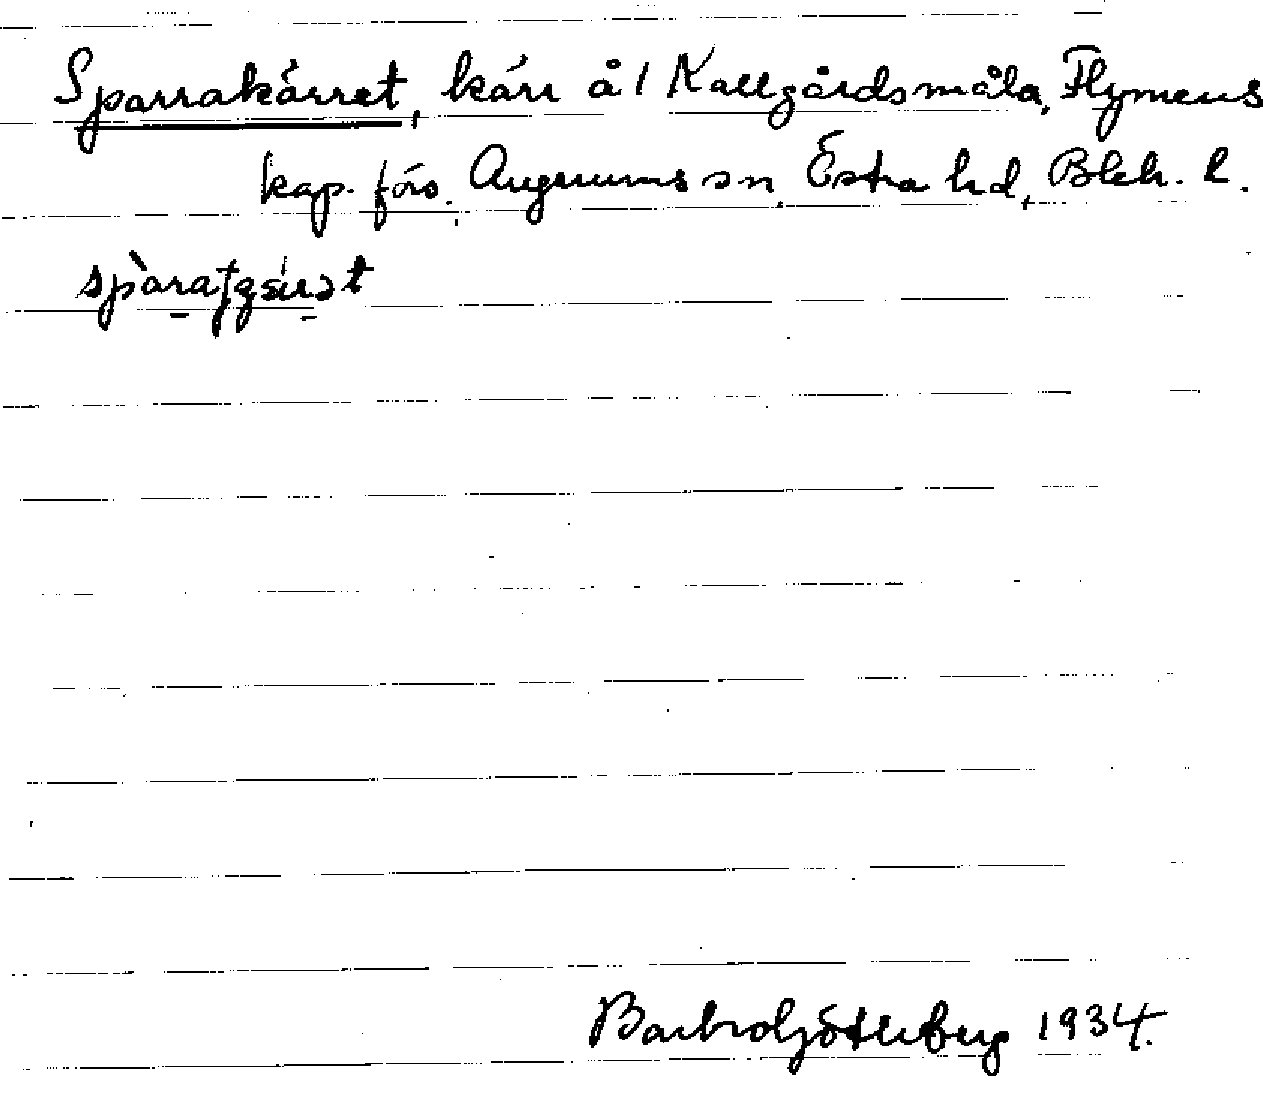 Sparrakärret, kärr å 1 Kallgårdsmåla, Flymens
kap. förs. Augerums sn, Östra hd, Blek. l.
Barbro Götberg 1934.